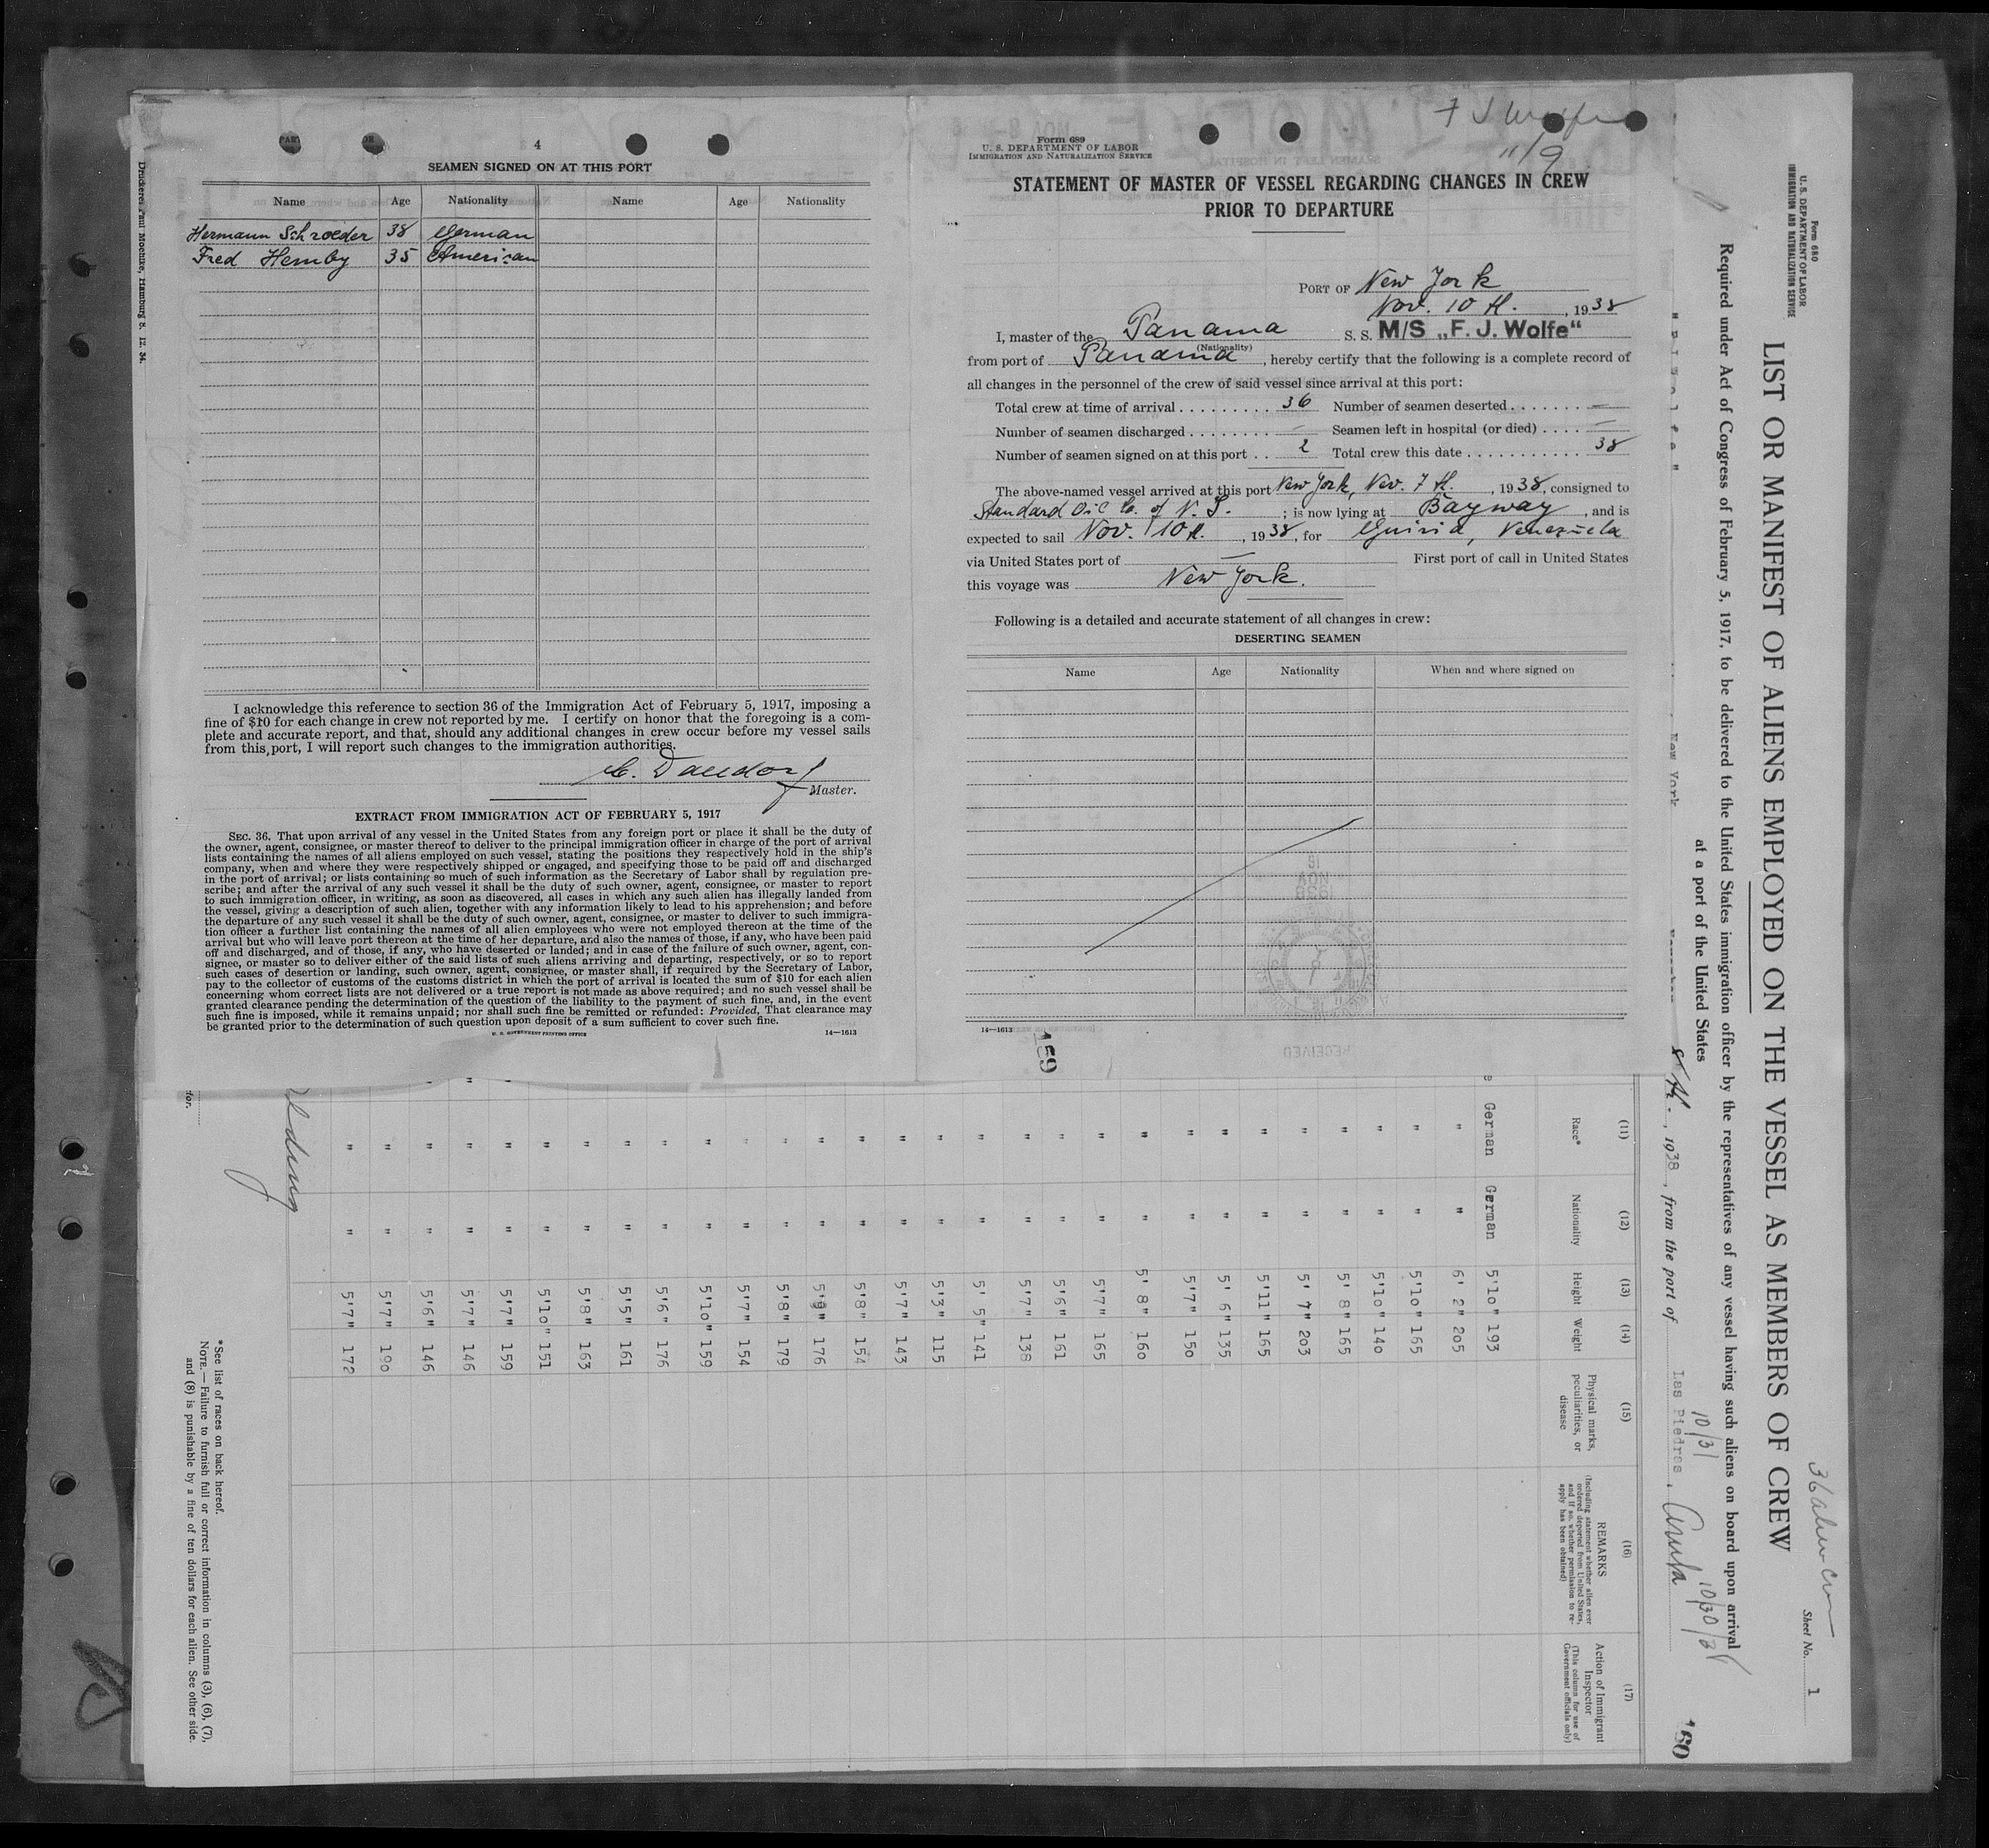 4
SEAMEN SIGNED ON AT THIS PORT
Name Age Nationality Name Age Nationality
Hermann Schroeder 38 German
Fred Hemby 35 American
I acknowledge this reference to section 36 of the Immigration Act of February 5, 1917, imposing a
fine of $10 for each change in crew not reported by me. I certify on honor that the foregoing is a com-
plete and accurate report, and that, should any additional changes in crew occur before my vessel sails
from this port, I will report such changes to the immigration authorities.
Master.
EXTRACT FROM IMMIGRATION ACT OF FEBRUARY 5, 1917
SEC. 36. That upon arrival of any vessel in the United States from any foreign port or place it shall be the duty of
the owner, agent, consignee, or master thereof to deliver to the principal immigration officer in charge of the port of arrival
lists containing the names of all aliens employed on such vessel, stating the positions they respectively hold in the ship's
company, when and where they were respectively shipped or engaged, and specifying those to be paid off and discharged
in the port of arrival; or lists containing so much of such information as the Secretary of Labor shall by regulation pre-
scribe; and after the arrival of any such vessel it shall be the duty of such owner, agent, consignee, or master to report
to such immigration officer, in writing, as soon as discovered, all cases in which any such alien has illegally landed from
the vessel, giving a description of such alien, together with any information likely to lead to his apprehension; and before
the departure of any such vessel it shall be the duty of such owner, agent, consignee, or master to deliver to such immigra-
tion officer a further list containing the names of all alien employees who were not employed thereon at the time of the
arrival but who will leave port thereon at the time of her departure, and also the names of those, if any, who have been paid
off and discharged, and of those, if any, who have deserted or landed; and in case of the failure of such owner, agent, con-
signee, or master so to deliver either of the said lists of such aliens arriving and departing, respectively, or so to report
such cases of desertion or landing, such owner, agent, consignee, or master shall, if required by the Secretary of Labor,
pay to the collector of customs of the customs district in which the port of arrival is located the sum of $10 for each alien
concerning whom correct lists are not delivered or a true report is not made as above required; and no such vessel shall be
granted clearance pending the determination of the question of the liability to the payment of such fine, and, in the event
such fine is imposed, while it remains unpaid; nor shall such fine be remitted or refunded: Provided, That clearance may
be granted prior to the determination of such question upon deposit of a sum sufficient to cover such fine.
U. S. GOVERNMENT PRINTING OFFICE 14—1613
Druckerei Paul Moehlke, Hamburg 8. 12. 34.
F J Wolfe
11/9
Form 689
U. S. DEPARTMENT OF LABOR
IMMIGRATION AND NATURALIZATION SERVICE
STATEMENT OF MASTER OF VESSEL REGARDING CHANGES IN CREW
PRIOR TO DEPARTURE
PORT OF New York
Nov. 10th., 1938
I, master of the Panama S. S. M/S „F. J. Wolfe“
(Nationality)
from port of Panama, hereby certify that the following is a complete record of
all changes in the personnel of the crew of said vessel since arrival at this port:
Total crew at time of arrival 36 Number of seamen deserted —
Number of seamen discharged — Seamen left in hospital (or died) —
Number of seamen signed on at this port 2 Total crew this date 38
The above-named vessel arrived at this port New York, Nov. 7th., 1938, consigned to
Standard Oil Co. of N. J.; is now lying at Bayway, and is
expected to sail Nov. 10th., 1938, for Guiria, Venezuela
via United States port of — First port of call in United States
this voyage was New York.
Following is a detailed and accurate statement of all changes in crew:
DESERTING SEAMEN
Name Age Nationality When and where signed on
15
NOV
1938
RECEIVED
14—1613
159
Form 680
U. S. DEPARTMENT OF LABOR
IMMIGRATION AND NATURALIZATION SERVICE
36 alien crew
Sheet No. 1
LIST OR MANIFEST OF ALIENS EMPLOYED ON THE VESSEL AS MEMBERS OF CREW
Required under Act of Congress of February 5, 1917, to be delivered to the United States immigration officer by the representatives of any vessel having such aliens on board upon arrival
at a port of the United States
10/31 10/30/38
New York 8th., 1938, from the port of Las Piedras, Aruba
160
(11) (12) (13) (14) (15) (16) (17)
Race* Nationality Height Weight Physical marks, peculiarities, or disease REMARKS (Including statement whether alien ever ordered deported from United States, and if so, whether permission to re-apply has been obtained) Action of Immigrant Inspector (This column for use of Government officials only)
German German 5'10" 193
" " 6' 2" 205
" " 5'10" 165
" " 5'10" 140
" " 5' 8" 165
" " 5' 7" 203
" " 5'11" 165
" " 5' 6" 135
" " 5'7" 150
" " 5' 8" 160
" " 5'7" 165
" " 5'6" 161
" " 5'7" 138
" " 5' 5" 141
" " 5'3" 115
" " 5'7" 143
" " 5'8" 154
" " 5'9" 176
" " 5'8" 179
" " 5'7" 154
" " 5'10" 159
" " 5'6" 176
" " 5'5" 161
" " 5'8" 163
" " 5'10" 151
" " 5'7" 159
" " 5'7" 146
" " 5'6" 146
" " 5'7" 190
" " 5'7" 172
*See list of races on back hereof.
NOTE.—Failure to furnish full or correct information in columns (3), (6), (7),
and (8) is punishable by a fine of ten dollars for each alien. See other side.